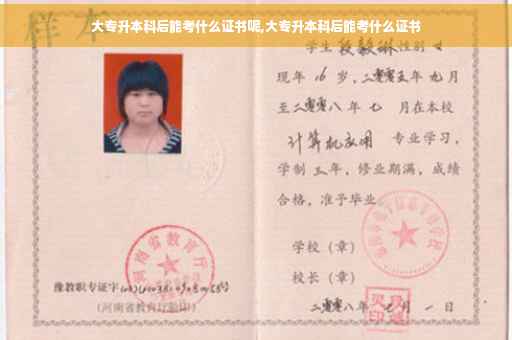 大专升本科后能考什么证书呢,大专升本科后能考什么证书
样本
学生 段毅琳 性别 女
现年 16 岁，二零零五年 九月
至二零零八年 七 月在本校
计算机应用 专业学习，
学制 三 年，修业期满，成绩
合格，准予毕业
学校（章）
校长（章）
河南省教育厅
豫教职专证字
（河南省教育厅验印）
二零零八年 七 月 一 日